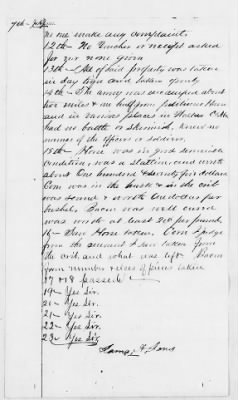 No one made any complaints.
12th - No Voucher or receipt asked
for nor none given
13th - All of said property was taken
in day time and taken openly
14th - The army was encamped about
five miles & one half from
and in various places in
had no battle or Skirmish, knew no
names of the officers or soldiers.
15th - Horse was in good
condition, was a stallion, and worth
about One hundred & seventy five dollars
Corn was in the husk & in the crib
was sound & worth One dollar per
bushel, Bacon was well cured
was worth at least 20c per pound.
16 - Saw Horse taken. Corn I judge
from the amount I saw taken from
the crib and what was left. Bacon
from number & sizes of pieces taken
17 & 18 passed
19 - Yes Sir.
20 - Yes Sir.
21 - Yes Sir.
22 - Yes Sir.
23 - Yes Sir.